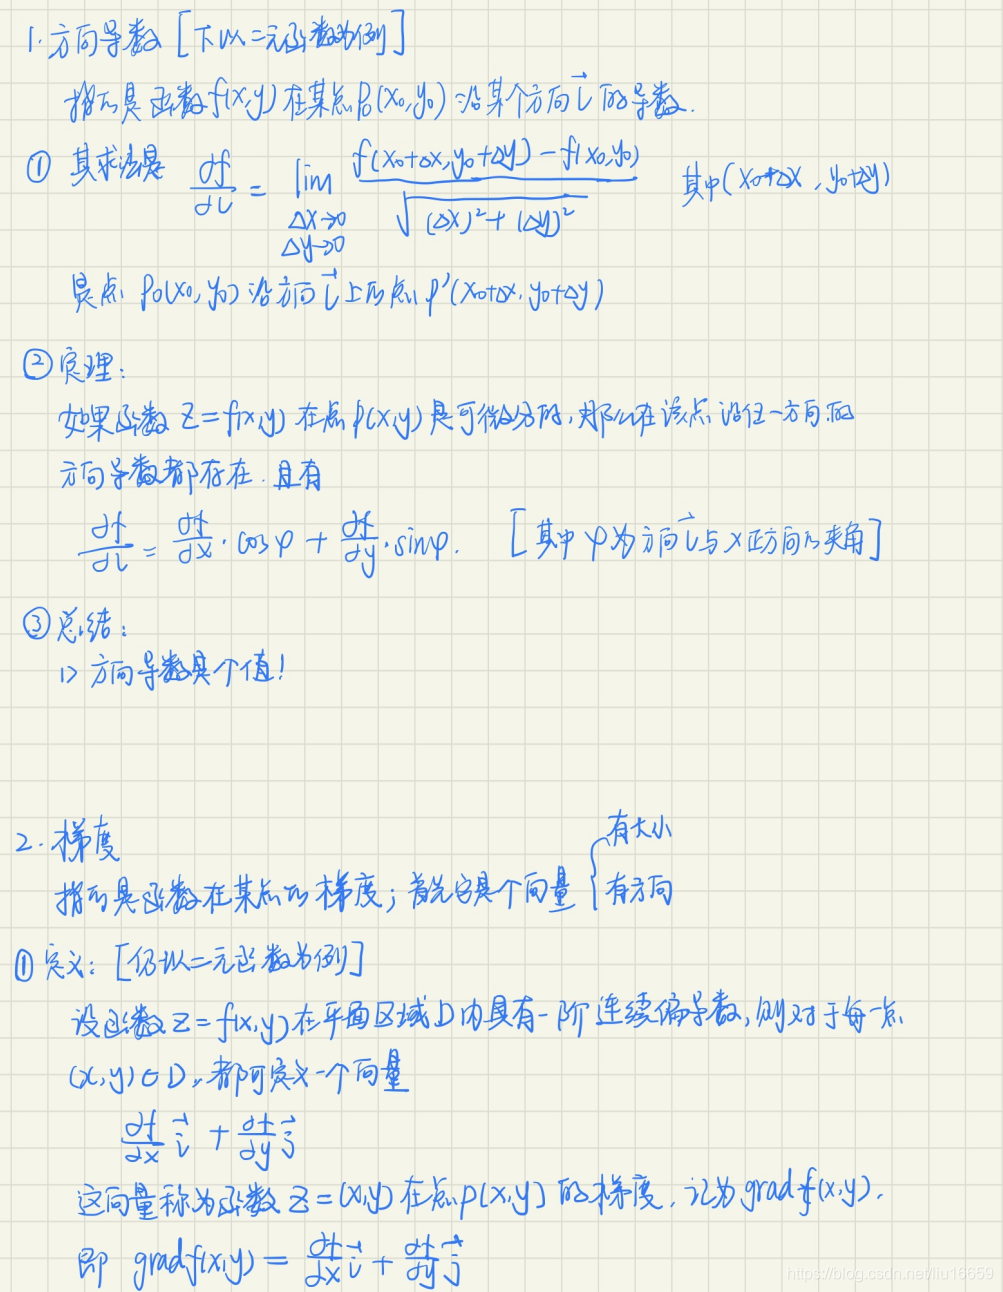 1. 方向导数 [下以二元函数为例]
指的是函数f(x,y)在某点P₀(x₀,y₀)沿某个方向l⃗的导数.
① 其求法是 ∂f/∂l = lim Δx→0 Δy→0 (f(x₀+Δx, y₀+Δy) - f(x₀,y₀)) / √((Δx)²+(Δy)²) 其中(x₀+Δx, y₀+Δy)
是点 P₀(x₀,y₀)沿方向l⃗上的点P'(x₀+Δx, y₀+Δy)
② 定理:
如果函数 z=f(x,y) 在点P(x,y)是可微分的,那么在该点沿任一方向的
方向导数都存在.且有
∂f/∂l = ∂f/∂x · cosφ + ∂f/∂y · sinφ. [其中φ为方向l⃗与x正方向的夹角]
③ 总结:
1> 方向导数是个值!
2. 梯度
指的是函数在某点的梯度; 首先它是个向量 { 有大小 有方向
① 定义: [仍以二元函数为例]
设函数z=f(x,y)在平面区域D内具有一阶连续偏导数,则对于每一点
(x,y)∈D,都可定义一个向量
∂f/∂x i⃗ + ∂f/∂y j⃗
这向量称为函数z=(x,y)在点P(x,y)的梯度,记为gradf(x,y).
即 gradf(x,y) = ∂f/∂x i⃗ + ∂f/∂y j⃗
https://blog.csdn.net/liu16659